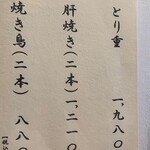 とり重　一、九八〇
肝焼き(二本)　一、二一〇
焼き鳥(二本)　八八〇